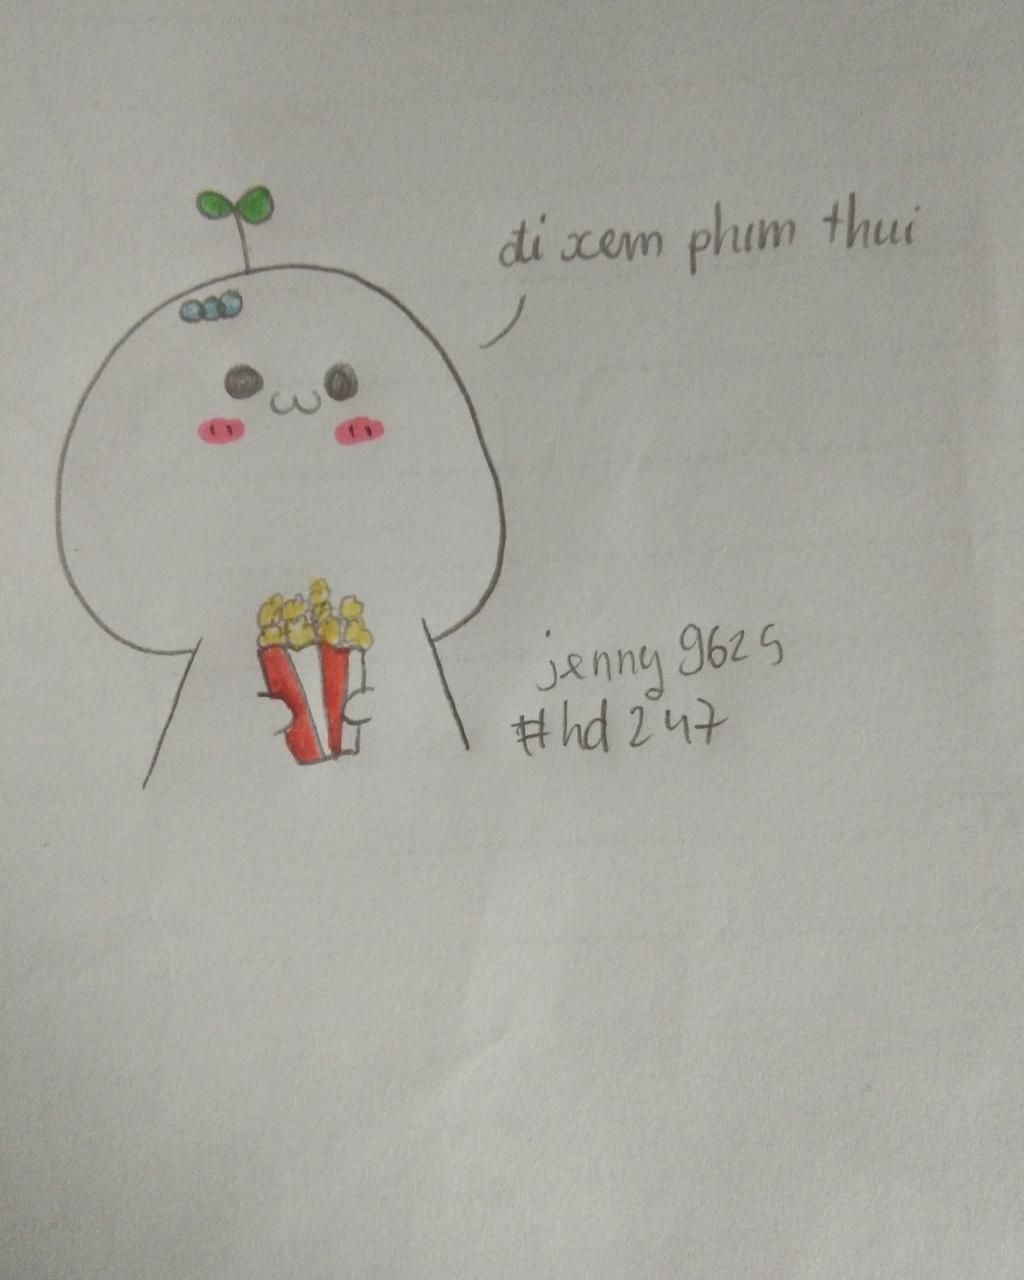 đi xem phim thui
jenny 9625
#hd 247